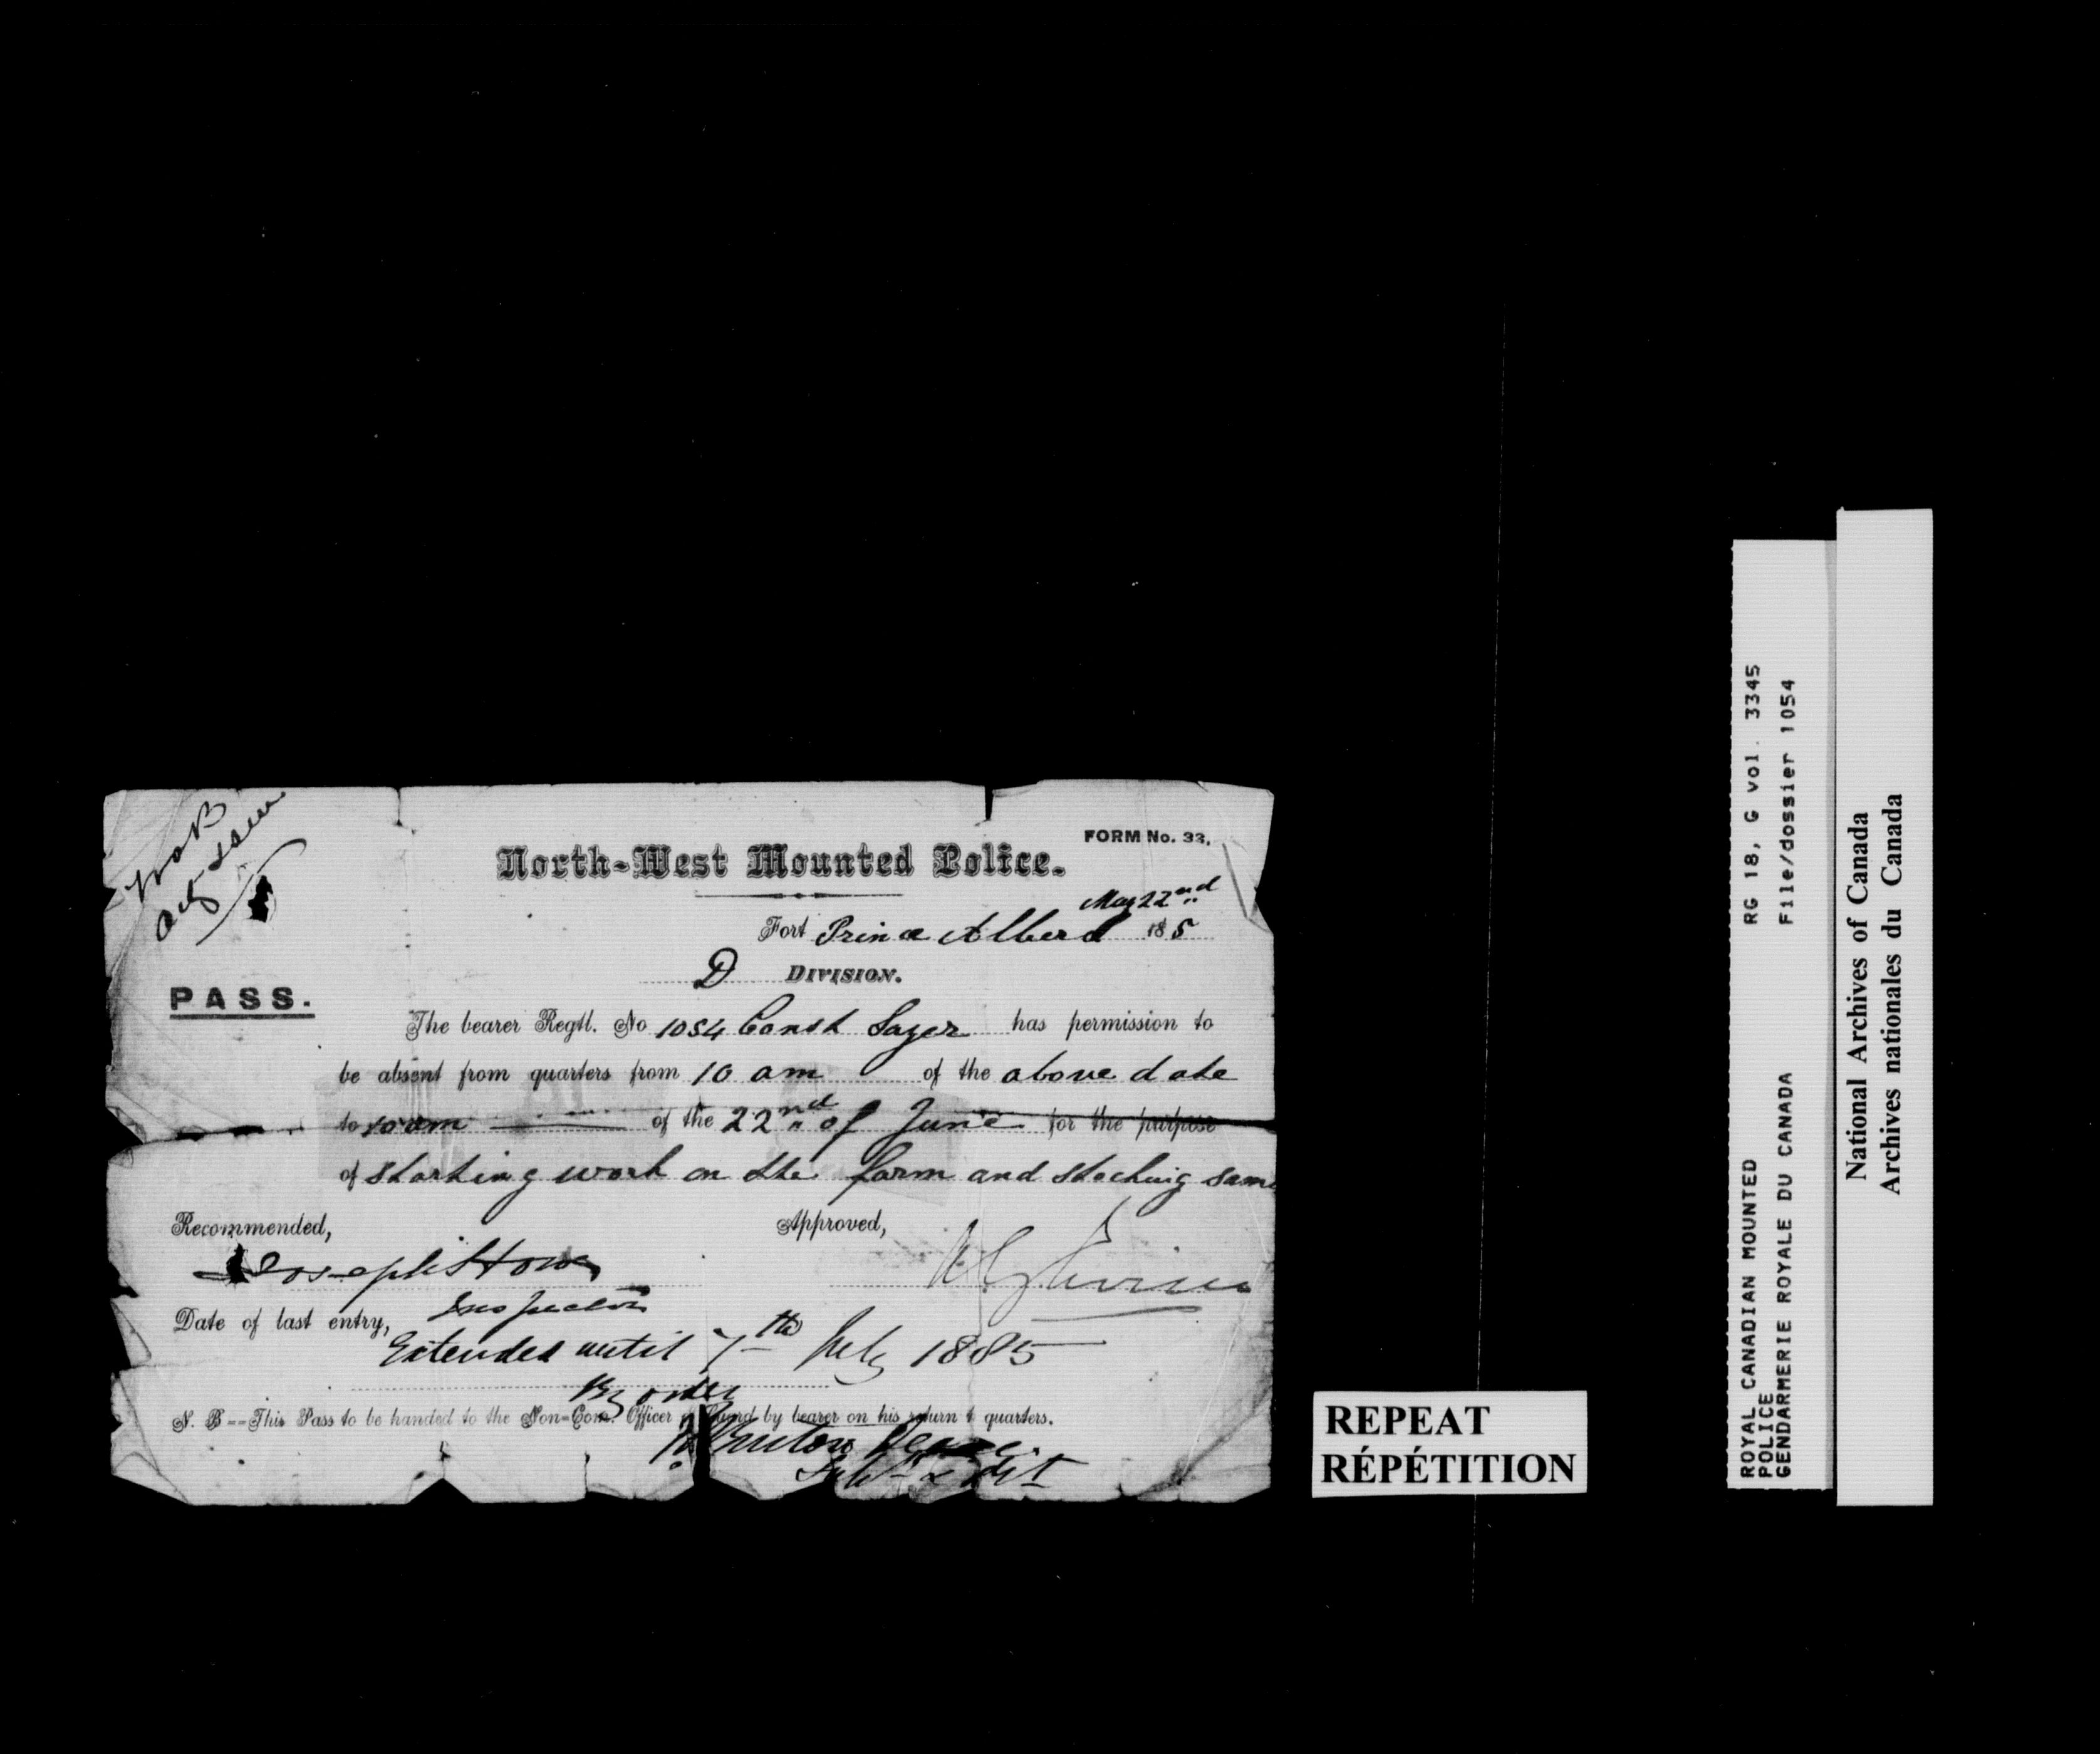 FORM No. 33.
North-West Mounted Police.
May 22nd
Fort Prince Albert 185
D DIVISION.
PASS.
The bearer Regtl. No 1054 Const Sayer has permission to
be absent from quarters from 10 am of the above date
to 10 am of the 22nd of June for the purpose
of starting work on the farm and stocking same
Recommended,
Approved,
Joseph Howe
Inspector
Date of last entry,
Extended until 7th July 1885
By order
N. B--This Pass to be handed to the Non-Com. Officer of Guard by bearer on his return to quarters.
Burton Deane
Supt & Adjt
REPEAT
RÉPÉTITION
ROYAL CANADIAN MOUNTED RG 18, G vol. 3345
POLICE
GENDARMERIE ROYALE DU CANADA File/dossier 1054
National Archives of Canada
Archives nationales du Canada